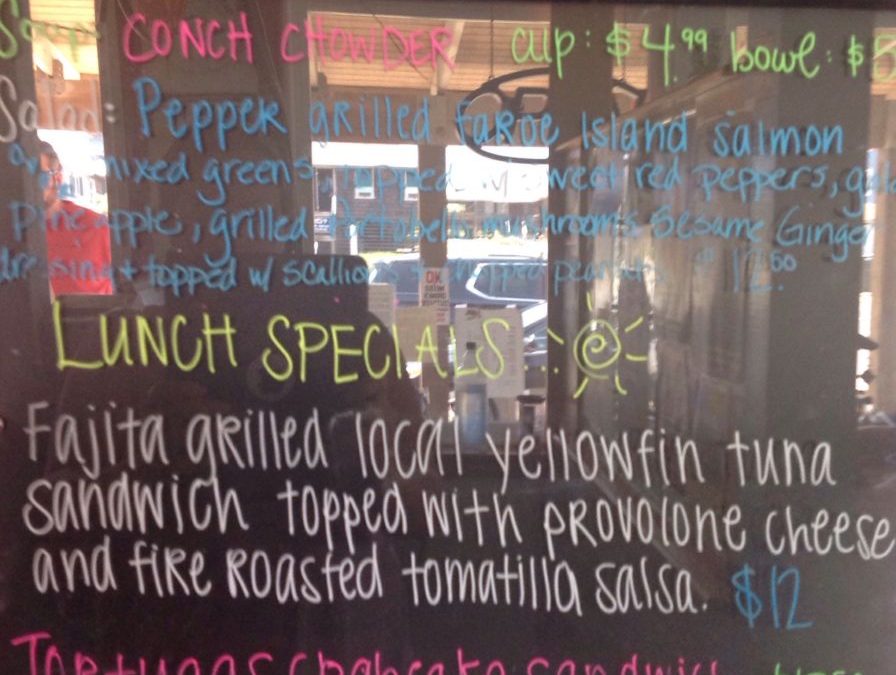 Soup: CONCH CHOWDER cup: $4.99 bowl: $5
Salad: Pepper grilled faroe Island salmon
mixed greens, topped w/ sweet red peppers,
pineapple, grilled Portobello mushrooms Sesame Ginger
dressing + topped w/ scallions + chopped peanuts. 12.00
LUNCH SPECIALS
Fajita grilled local yellowfin tuna
sandwich topped with provolone cheese
and fire roasted tomatilla salsa. $12
Tortugas crabcake sandwich